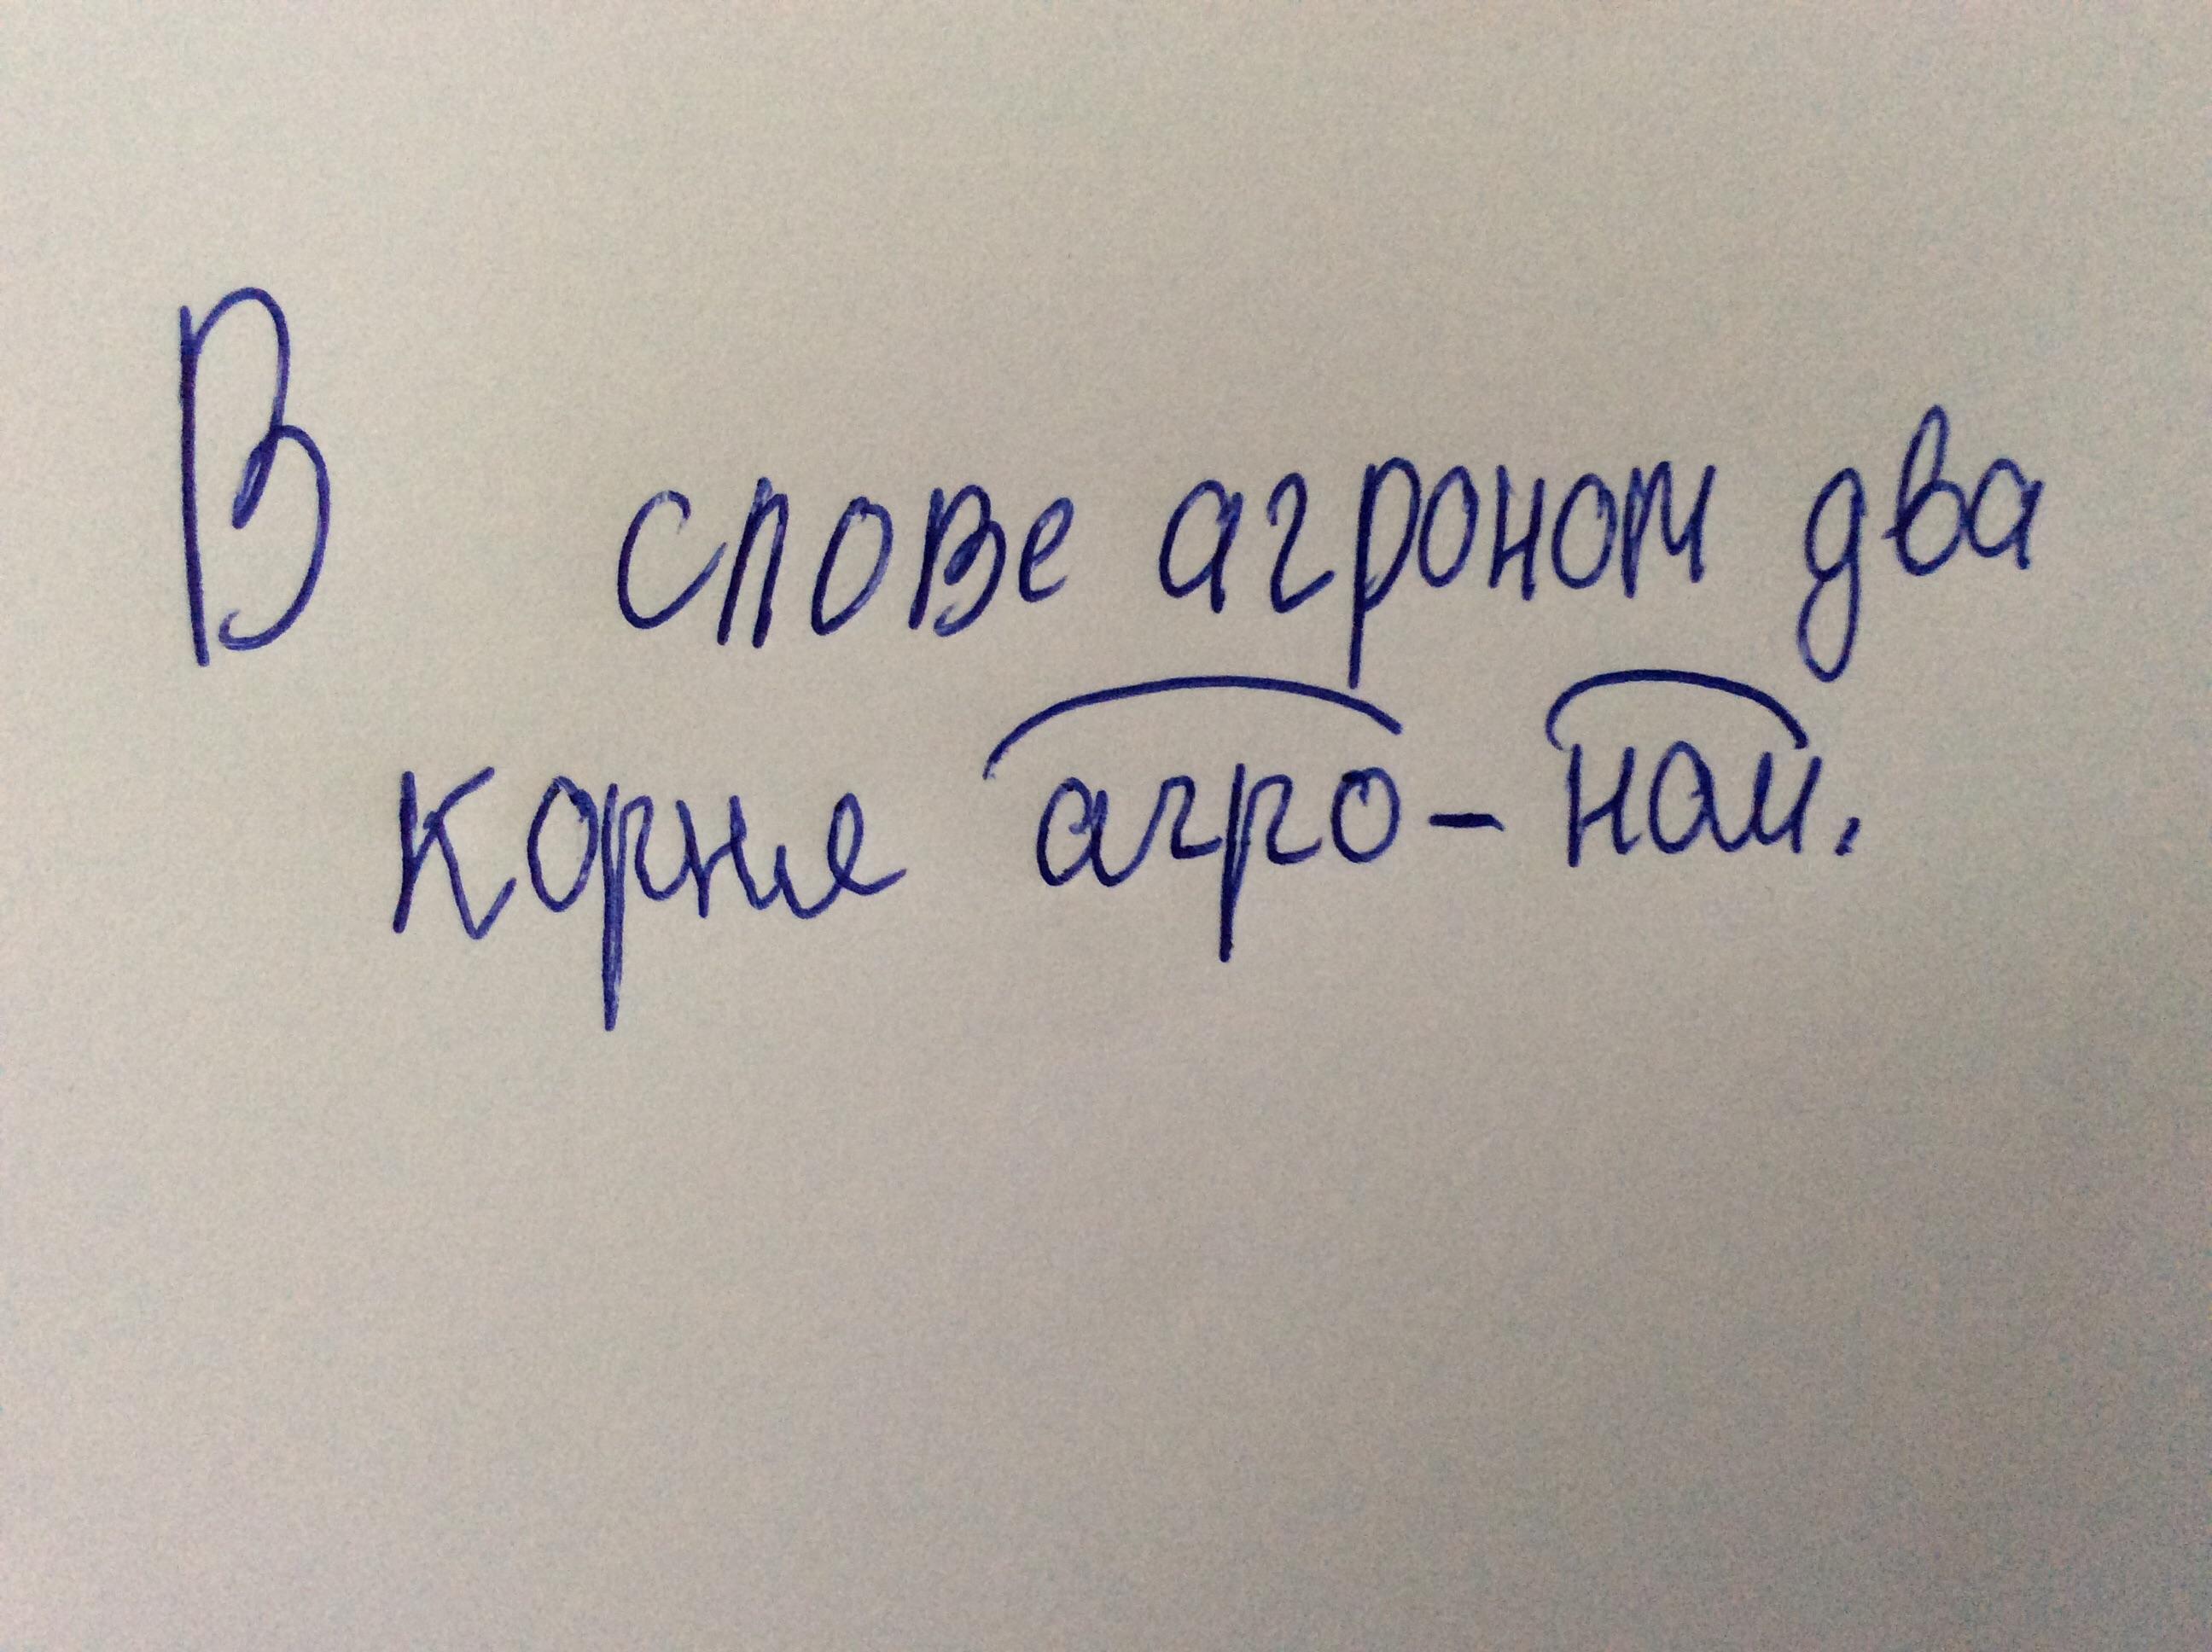 В слове агроном два
корня агро-ном.